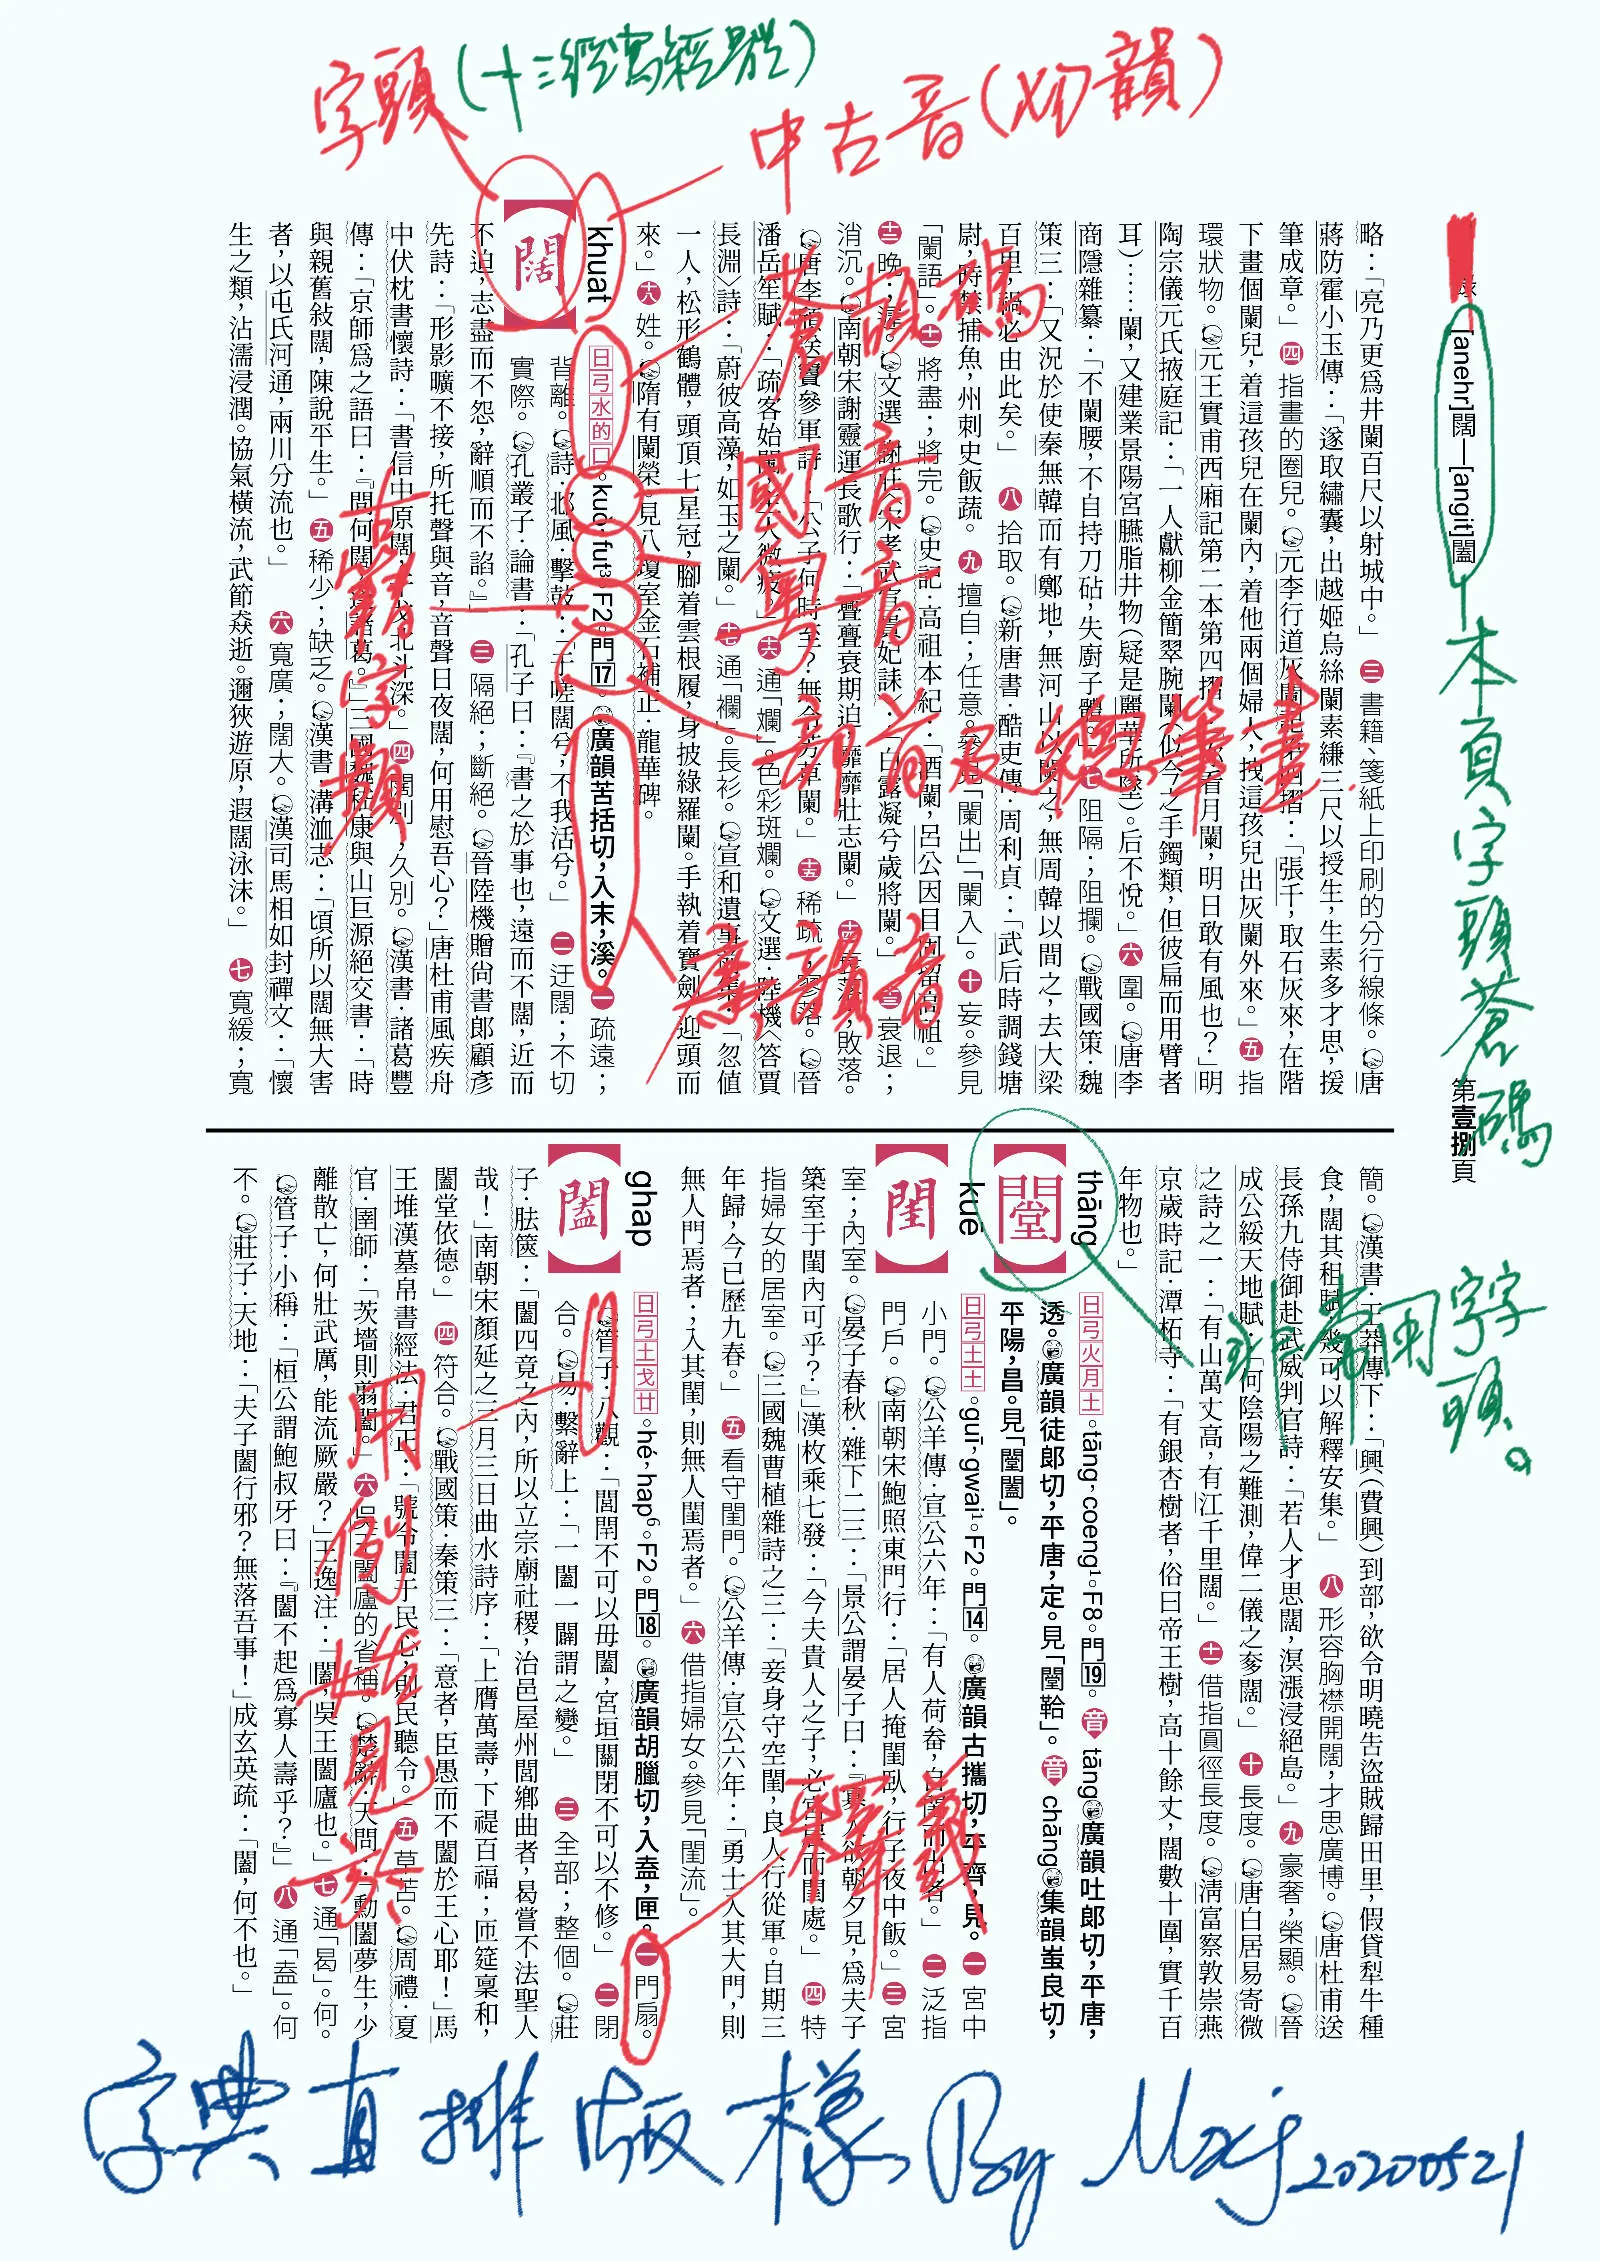 字頭(十三經寫經體)
中古音(切韻)
[anehr]闊—[angit]闔
第壹捌頁
本頁字頭蒼碼
略：「亮乃更爲井闌百尺以射城中。」三書籍、箋紙上印刷的分行線條。唐
蔣防霍小玉傳：「遂取繡囊，出越姬烏絲闌素縑三尺以授生，生素多才思，援
筆成章。」四指畫的圈兒。元李行道灰闌記第四摺：「張千，取石灰來，在階
下畫個闌兒，着這孩兒在闌內，着他兩個婦人，拽這孩兒出灰闌外來。」五指
環狀物。元王實甫西廂記第二本第四摺：「你看月闌，明日敢有風也？」明
陶宗儀元氏掖庭記：「一人獻柳金簡翠腕闌（似今之手鐲類，但彼扁而用臂者
耳）……闌，又建業景陽宮臙脂井物（疑是麗華所墜）。后不悅。」六圍。唐李
商隱雜纂：「不闌腰，不自持刀砧，失廚子體。」七阻隔；阻攔。戰國策·魏
策三：「又況於使秦無韓而有鄭地，無河山以闌之，無周韓以間之，去大梁
百里，禍必由此矣。」八拾取。新唐書·酷吏傳·周利貞：「武后時調錢塘
尉，時禁捕魚，州刺史飯蔬。九擅自；任意。參見「闌出」「闌入」。十妄。參見
「闌語」。十一將盡；將完。史記·高祖本紀：「酒闌，呂公因目固留高祖。」
十二晚；遲。文選·謝莊〈宋孝武宣貴妃誄〉：「白露凝兮歲將闌。」十三衰退；
消沉。南朝宋謝靈運長歌行：「亹亹衰期迫，靡靡壯志闌。」十四衰落；敗落。
唐李頎送竇參軍詩：「公子何時至？無令芳草闌。」十五稀疏；零落。晉
潘岳笙賦：「疏客始闌，主人微疲。」十六通「斕」。色彩斑斕。文選·陸機〈答賈
長淵〉詩：「蔚彼高藻，如玉之闌。」十七通「襴」。長衫。宣和遺事前集：「忽值
一人，松形鶴體，頭頂七星冠，腳着雲根履，身披綠羅闌。手執着寶劍，迎頭而
來。」十八姓。隋有闌榮。見八瓊室金石補正·龍華碑。
闊
khuat
日弓水的口。kuò·fut³。F2。門17。廣韻苦括切，入末，溪。一疏遠；
背離。詩·邶風·擊鼓：「于嗟闊兮，不我活兮。」二迂闊；不切
實際。孔叢子·論書：「孔子曰：『書之於事也，遠而不闊，近而
不迫，志盡而不怨，辭順而不諂。』」三隔絕；斷絕。晉陸機贈尚書郎顧彥
先詩：「形影曠不接，所托聲與音，音聲日夜闊，何用慰吾心？」唐杜甫風疾舟
中伏枕書懷詩：「書信中原闊，干戈北斗深。」四闊別；久別。漢書·諸葛豐
傳：「京師爲之語曰：『間何闊，逢諸葛。』」三國魏嵇康與山巨源絕交書：「時
與親舊敍闊，陳說平生。」五稀少；缺乏。漢書·溝洫志：「頃所以闊無大害
者，以屯氏河通，兩川分流也。」六寬廣；闊大。漢司馬相如封禪文：「懷
生之類，沾濡浸潤。協氣橫流，武節猋逝。邇狹遊原，遐闊泳沫。」七寬緩；寬
蒼頡碼
國音
粵音
部首及總筆畫
廣韻音
古籍字頻
簡。漢書·王莽傳下：「興（費興）到部，欲令明曉告盜賊歸田里，假貸犁牛種
食，闊其租賦，幾可以解釋安集。」八形容胸襟開闊，才思廣博。唐杜甫送
長孫九侍御赴武威判官詩：「若人才思闊，溟漲浸絕島。」九豪奢，榮顯。晉
成公綏天地賦：「何陰陽之難測，偉二儀之奓闊。」十長度。唐白居易寄微
之詩之一：「有山萬丈高，有江千里闊。」十一借指圓徑長度。淸富察敦崇燕
京歲時記·潭柘寺：「有銀杏樹者，俗曰帝王樹，高十餘丈，闊數十圍，實千百
年物也。」
闛
thāng
日弓火月土。tāng，coeng¹。F8。門19。音 tāng廣韻吐郎切，平唐，
透。廣韻徒郎切，平唐，定。見「闛鞈」。音 chāng集韻蚩良切，
平陽，昌。見「闛闔」。
閨
kuē
日弓土土。guī，gwai¹。F2。門14。廣韻古攜切，平齊，見。一宮中
小門。公羊傳·宣公六年：「有人荷畚，自閨而出者。」二泛指
門戶。南朝宋鮑照東門行：「居人掩閨臥，行子夜中飯。」三宮
室；內室。晏子春秋·雜下二三：「景公謂晏子曰：『寡人欲朝夕見，爲夫子
築室于閨內可乎？』」漢枚乘七發：「今夫貴人之子，必宮居而閨處。」四特
指婦女的居室。三國魏曹植雜詩之三：「妾身守空閨，良人行從軍。自期三
年歸，今已歷九春。」五看守閨門。公羊傳·宣公六年：「勇士入其大門，則
無人門焉者；入其閨，則無人閨焉者。」六借指婦女。參見「閨流」。
闔
ghap
日弓土戈廿。hé，hap⁶。F2。門18。廣韻胡臘切，入盍，匣。一門扇。
管子·八觀：「閭閈不可以毋闔，宮垣關閉不可以不修。」二閉
合。易·繫辭上：「一闔一闢謂之變。」三全部；整個。莊
子·胠篋：「闔四竟之內，所以立宗廟社稷，治邑屋州閭鄉曲者，曷嘗不法聖人
哉！」南朝宋顏延之三月三日曲水詩序：「上膺萬壽，下禔百福；匝筵稟和，
闔堂依德。」四符合。戰國策·秦策三：「意者，臣愚而不闔於王心耶！」馬
王堆漢墓帛書經法·君正：「號令闔于民心，則民聽令。」五草苫。周禮·夏
官·圉師：「茨墻則翦闔。」六吳王闔廬的省稱。楚辭·天問：「勳闔夢生，少
離散亡，何壯武厲，能流厥嚴？」王逸注：「闔，吳王闔廬也。」七通「曷」。何。
管子·小稱：「桓公謂鮑叔牙曰：『闔不起爲寡人壽乎？』」八通「盍」。何
不。莊子·天地：「夫子闔行邪？無落吾事！」成玄英疏：「闔，何不也。」
非常用字字頭。
釋義
用例始見於
字典直排版樣 By Maxj 20200521